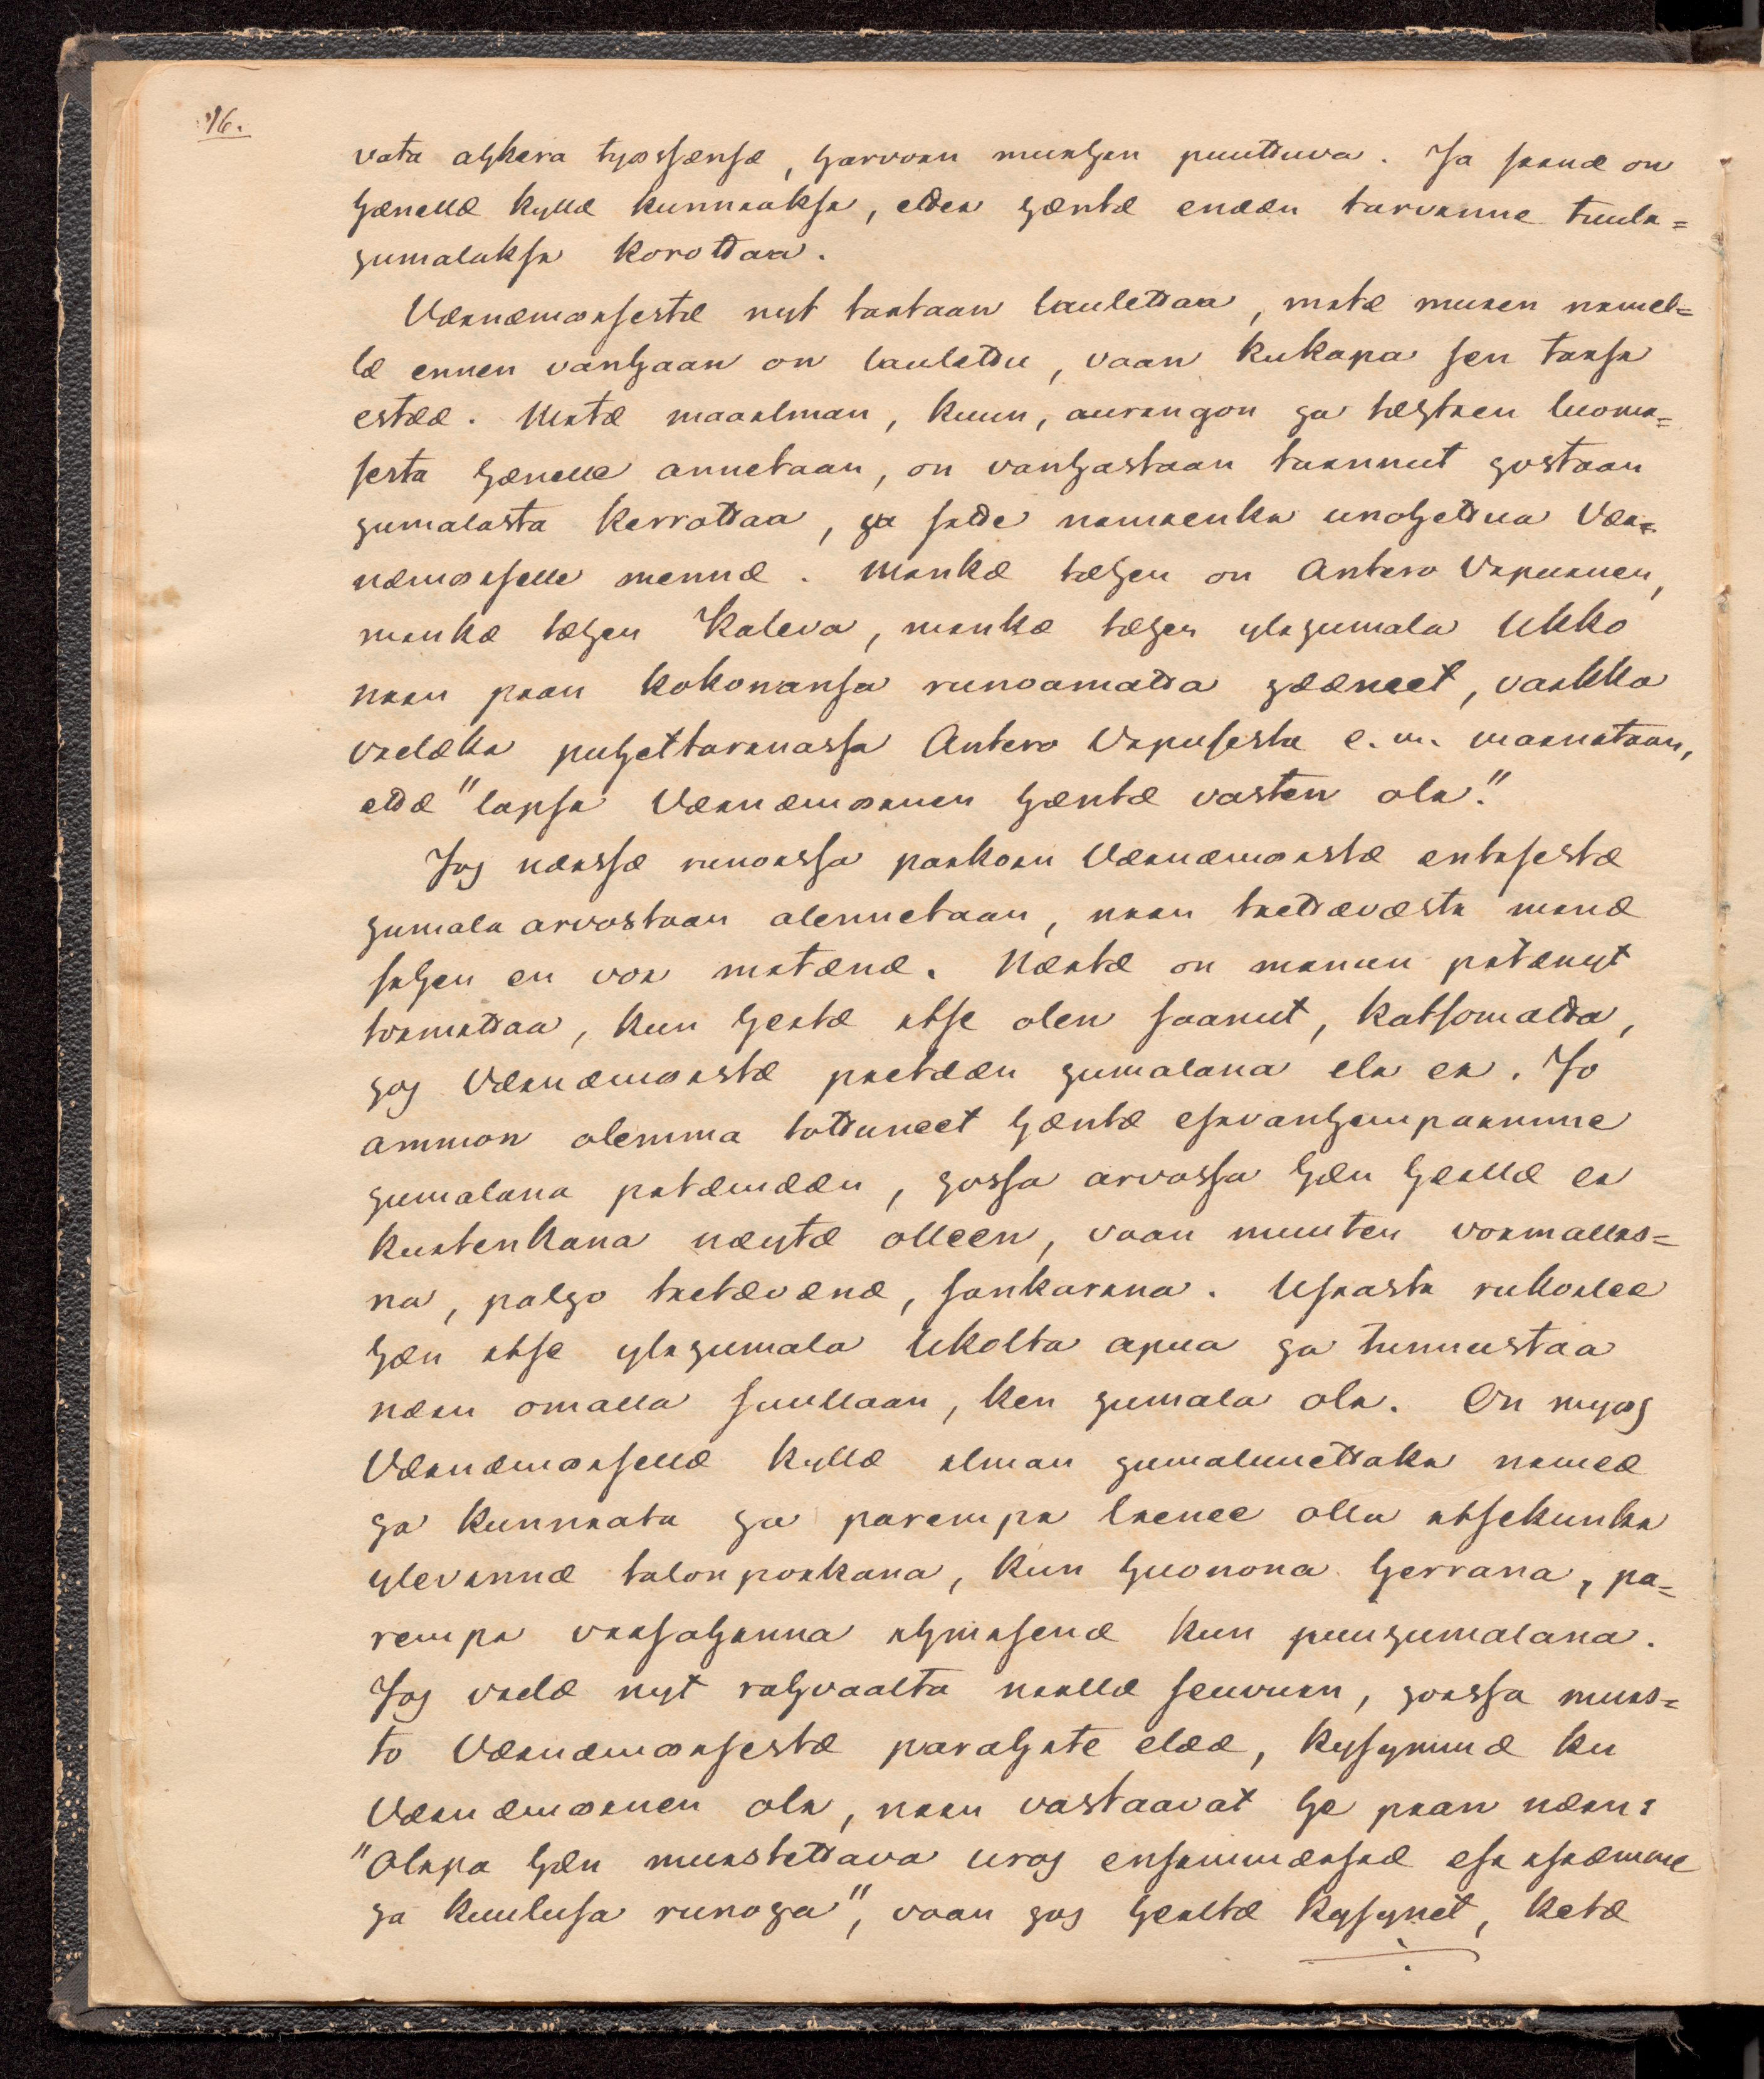 16.
vata ahkera tyœssænsæ, harvoin muihin puuttuva. Ja siinæ on
hænellæ kyllæ kunniaksi, ettei hæntæ enææn tarvinne tuuli=
jumalaksi korottaa.
Væinæmœisestæ nyt taitaan laulettaa, mitæ muien nimel=
læ ennen vanhaan on laulettu, vaan kukapa sen taisi
estææ. Mitæ maailman, kuun, auringon ja tæhtien luomi=
sesta hænelle annetaan, on vanhastaan tainnut jostaan
jumalasta kerrottaa, ja sitte nimienki unohettua Væi=
næmœiselle mennæ. Minkæ tæhen on Antero Vipuinen,
minkæ tæhen Kaleva, minkæ tæhen ylijumala Ukko
niin pian kokonansa runoamatta jææneet, vaikka
vielæki puhettarinassa Antero Vipusesta e.m. mainitaan,
ettæ "lapsi Væinæmœinen hæntæ vasten oli."
Jos næissæ runoissa paikoin Væinæmœistæ entisestæ
jumala arvostaan alennetaan, niin tiettævæsti minæ
siihen en voi mitænæ. Næitæ on minun pitænyt
toimittaa, kun heitæ itse olen saanut, katsomatta,
jos Væinæmœistæ pietææn jumalana eli ei. Jo
ammon olemma tottuneet hæntæ esivanhempainme
jumalana pitæmææn, jossa arvossa hæn heillæ ei
kuitenkana næytæ olleen, vaan muuten voimallis=
na, paljo tietævænæ, sankarina. Usiasti rukoilee
hæn itse ylijumala Ukolta apua ja tunnustaa
næin omalla suullaan, ken jumala oli. On myœs
Væinæmœisellæ kyllæ ilman jumaluuettaki nimeæ
ja kunniata ja parempi lienee olla itsekunki
ylevinnæ talonpoikana, kun huonona herrana, pa=
rempi viisahinna ihmisenæ kun puujumalana.
Jos vielæ nyt rahvaalta niillæ seuvuin, joissa muis=
to Væinæmœisestæ parahite elææ, kysymmæ ku
Væinæmœinen oli, niin vastaavat he pian næin:
"Olipa hæn muistettava uros ensimmæisiæ esiisiæmme
ja kuulusa runoja", vaan jos heiltæ kysynet, ketæ